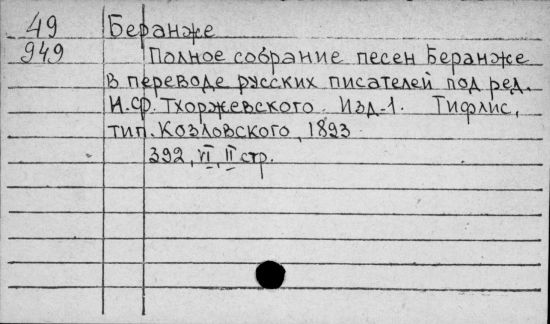 49 Беранже
949 Полное собрание песен Беранже
в переводе русских писателей под ред.
И.Ф. Тхоржевского. Изд-1. Тифлис,
тип. Козловского, 1893
392, VI, II стр.